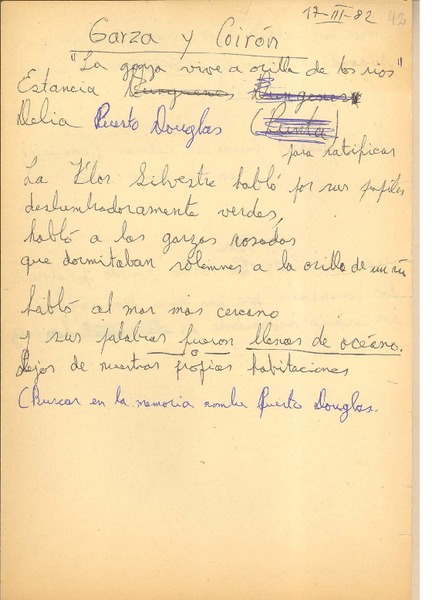 17-III-82 42
Garza y Coirón
"La garza vive a orilla de los ríos"
Estancia
Delia Puerto Douglas (Punta)
para ratificar
La Flor Silvestre habló por sus pupilas
deslumbradoramente verdes,
habló a las garzas rosadas
que dormitaban solemnes a la orilla de un río
habló al mar mas cercano
y sus palabras fueron llenas de océano.
o
Lejos de nuestras propias habitaciones
(Buscar en la memoria nombre Puerto Douglas.